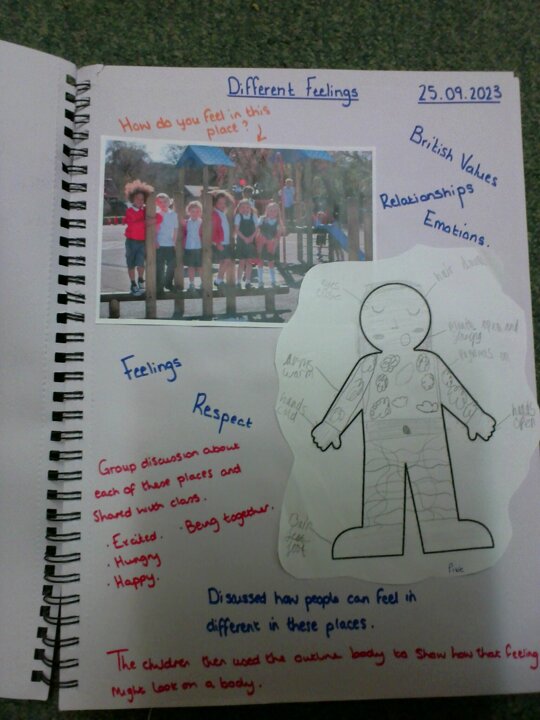 Different Feelings
25.09.2023
How do you feel in this
place?
British Values
Relationships
Emotions.
eyes
close
mouth open and
arms
warm
hands
cold
hands
open
Feelings
Respect
Group discussion about
each of these places and
shared with class.
. Excited. . Being together.
. Hungry
. Happy.
Discussed how people can feel in
different in these places.
The children then used the outline body to show how that feeling
might look on a body.